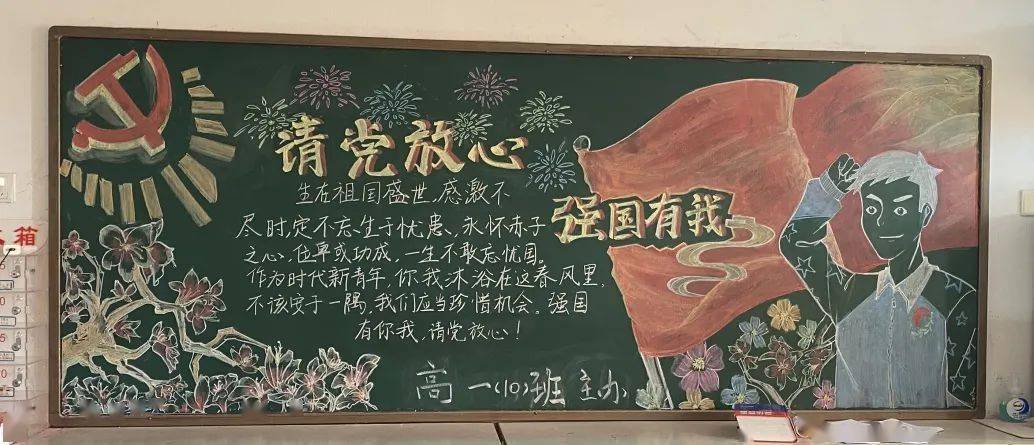 请党放心
强国有我
生在祖国盛世，感激不
尽时，定不忘生于忧患、永怀赤子
之心，位卑或功成，一生不敢忘忧国。
作为时代新青年，你我沐浴在这春风里，
不该安于一隅，我们应当珍惜机会。强国
有你我，请党放心！
高一（10）班 主办
箱